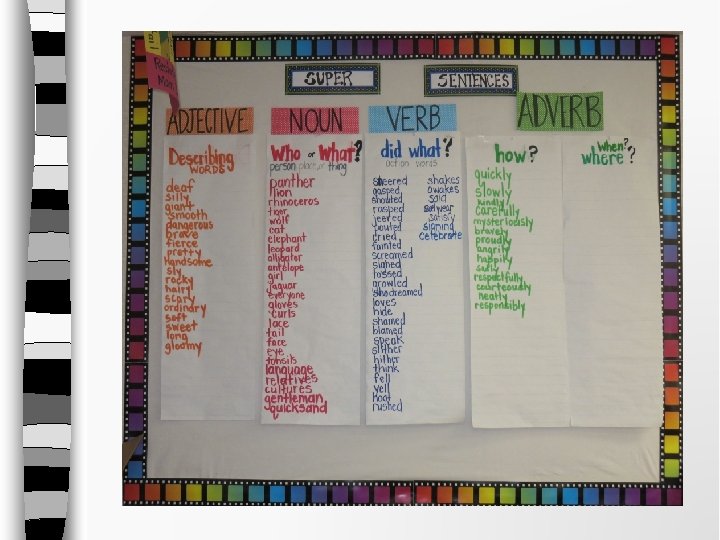 SUPER
SENTENCES
ADJECTIVE
Describing
WORDS
deaf
silly
giant
smooth
dangerous
brave
fierce
pretty
Handsome
sly
rocky
hairy
scary
ordinary
soft
sweet
long
gloomy
NOUN
Who or What?
person place or thing
panther
lion
rhinoceros
tiger
wolf
cat
elephant
leopard
alligator
antelope
girl
Jaguar
everyone
gloves
curls
lace
tail
face
eye
tonsils
language
relatives
cultures
gentleman
quicksand
VERB
did what?
action words
sneered
gasped
shouted
rasped
jeered
pouted
cried
fainted
screamed
sighed
tossed
growled
loves
hide
shamed
blamed
speak
slither
hither
think
fell
yell
float
rushed
shakes
awakes
said
satisfy
signing
celebrate
ADVERB
how?
quickly
slowly
kindly
carefully
mysteriously
bravely
proudly
angrily
happily
sadly
respectfully
courteously
neatly
responsibly
when?
where?